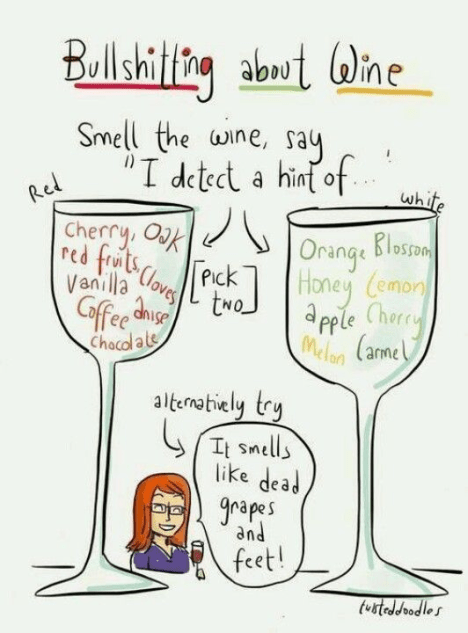 Bullshitting about Wine
Smell the wine, say
"I detect a hint of...'
Red
white
Cherry, Oak
red fruits, Cloves
Vanilla
Coffee anise
chocolate
[Pick
two]
Orange Blossom
Honey Lemon
apple Cherry
Melon Carmel
alternatively try
It smells
like dead
grapes
and
feet!
twisteddoodles